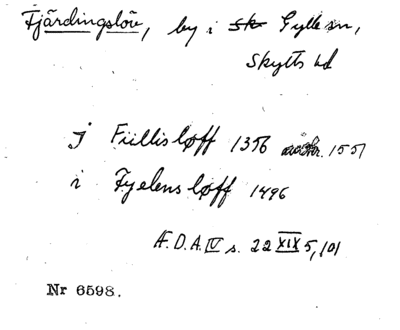 Fjärdingslöv, by i Gylle sn,
Skytts hd
j Fiillisløff 1356 avskr. 1551
i Fyelensløff 1496
Æ.D.A. IV s. 22 XIX 5, 101
Nr 6598.